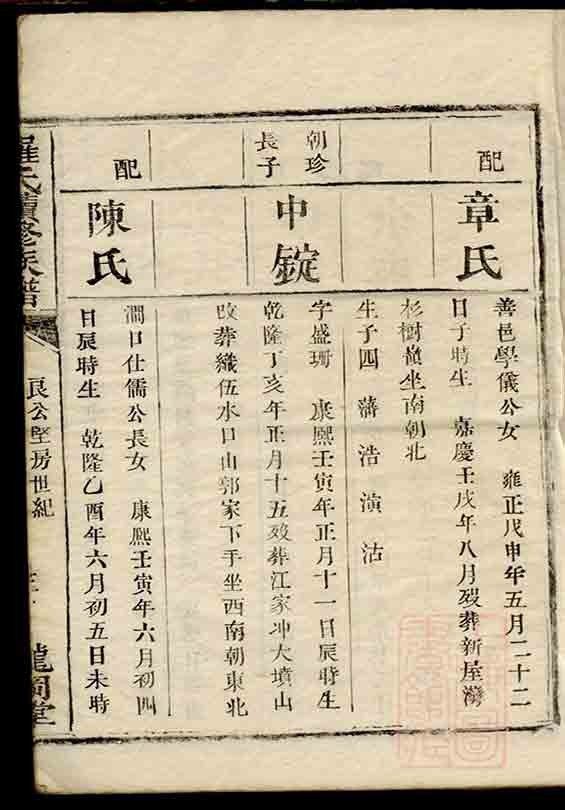 配
章氏
善邑學儀公女 雍正戊申年五月二十二
日子時生 嘉慶壬戌年八月歿葬新屋灣
杉樹嶺坐南朝北
生子四 藩 浩 演 沽
朝珍
長子
中錠
字盛珊 康熙壬寅年正月十一日辰時生
乾隆丁亥年正月十五歿葬江家冲大墳山
改葬織伍水口山郭家下手坐西南朝東北
配
陳氏
澗口仕儒公長女 康熙壬寅年六月初四
日辰時生 乾隆乙酉年六月初五日未時
羅氏續修族譜
良公堅房世紀